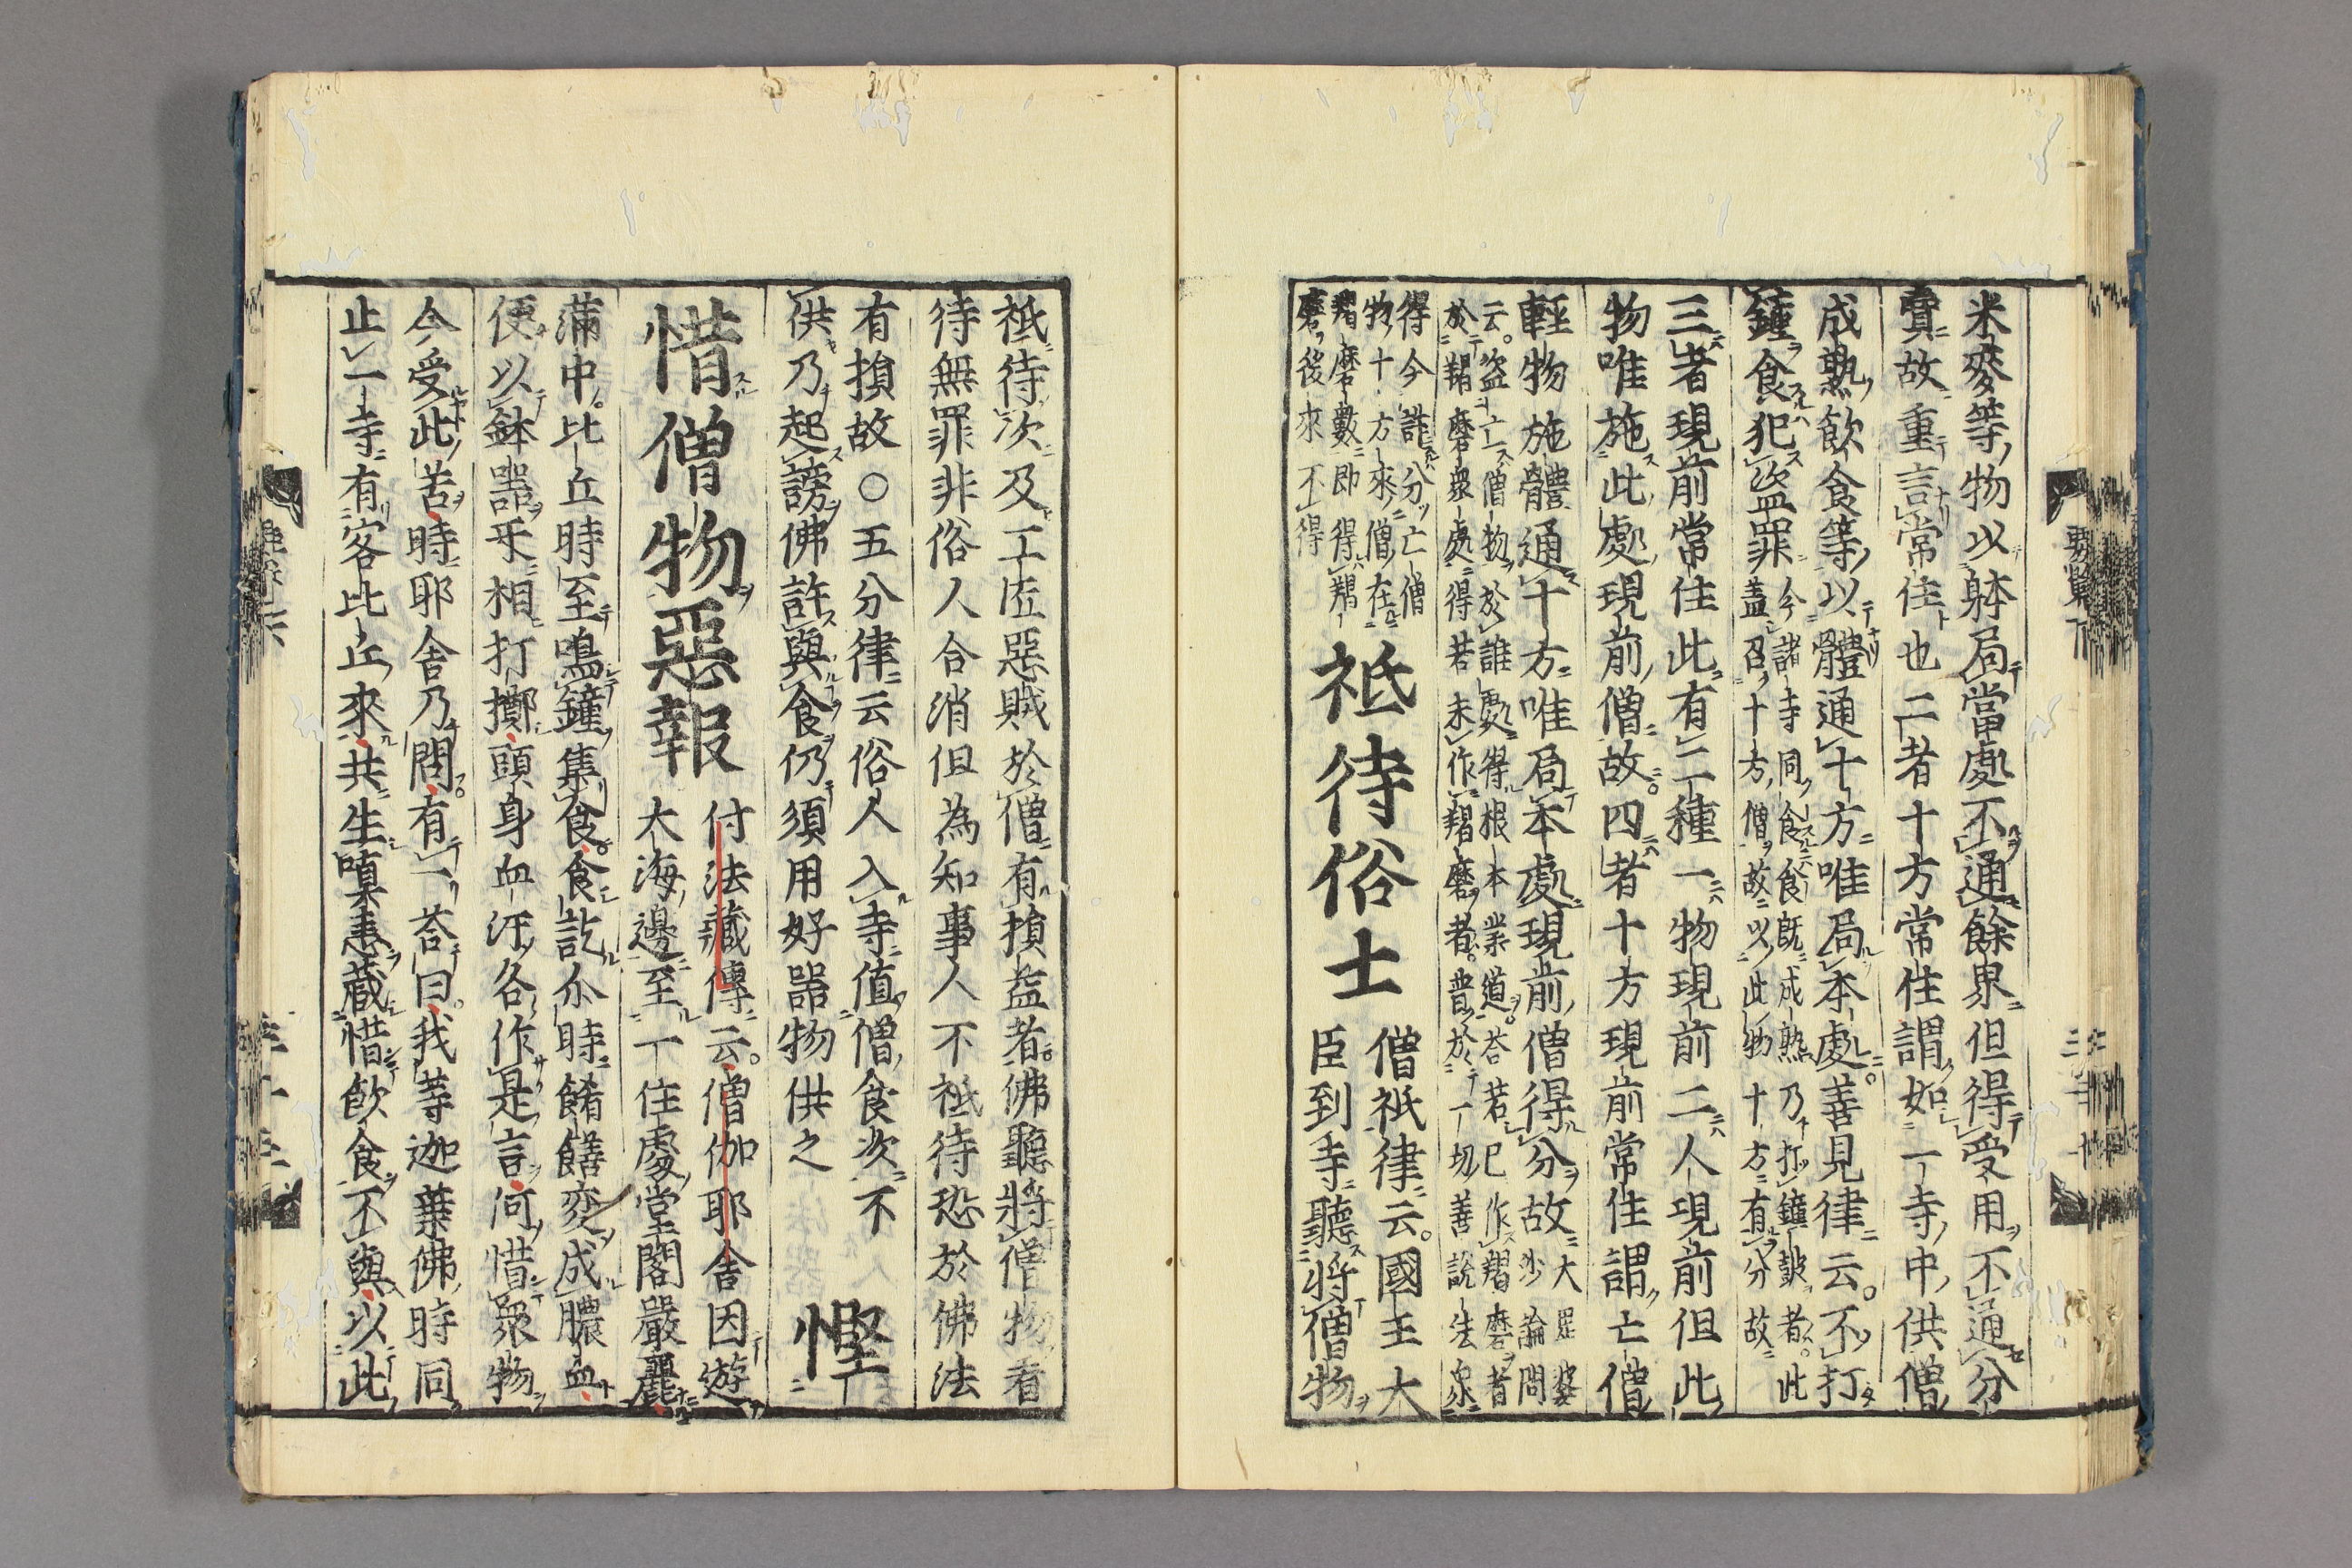 米麥等物以躰局當處不通餘界但得受用不通分
賣故重言常住也二者十方常住謂如一寺中供僧
成熟飲食等以體通十方唯局本處善見律云不打
鐘食犯盜罪
今諸寺同食食既成熟乃打鐘皷者此
盖召十方僧故以此物十方有分故
三者現前常住此有二種一物現前二人現前但此
物唯施此處現前僧故四者十方現前常住謂亡僧
輕物施體通十方唯局本處現前僧得分故
大毘婆
沙論問
云盜亡僧物於誰處得根本業道荅若已作羯磨者
於羯磨衆處得若未作羯磨者普於一切善說法衆
得今詐分亡僧
物十方來僧在
羯磨數即得羯
磨後來不得
祇待俗士
僧祇律云國王大
臣到寺聽將僧物
祇待次及工匠惡賊於僧有損益者佛聽將僧物看
待無罪非俗人合消但為知事人不祇待恐於佛法
有損故○五分律云俗人入寺值僧食次不
供乃起謗佛許與食仍須用好器物供之
慳
惜僧物惡報
付法藏傳云僧伽耶舍因遊
大海邊至一住處堂閣嚴麗
滿中比丘時至鳴鐘集食食訖尒時餚饍变成膿血
便以鉢器㸦相打擲頭身血汙各作是言何惜衆物
今受此苦時耶舍乃問有一荅曰我等迦葉佛時同
止一寺有客比丘來共生嗔恚蔵惜飲食不與以此